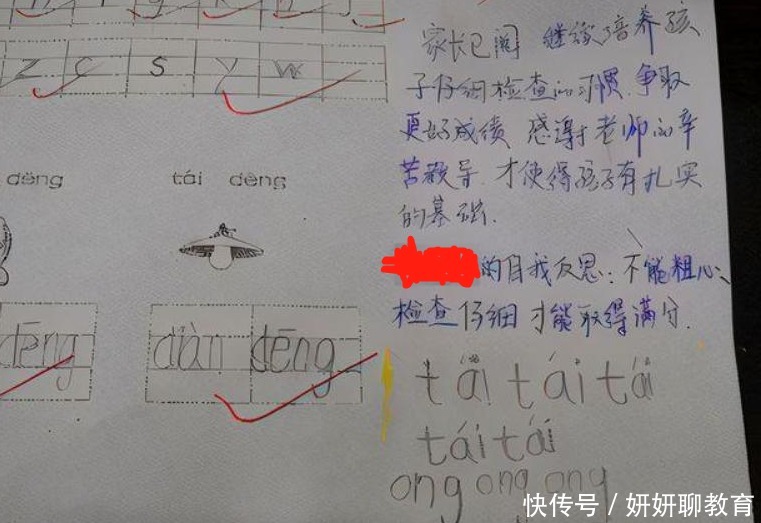 z c s y w
家长已阅 继续培养孩
子仔细检查的习惯.争取
更好成绩 感谢老师的辛
苦教导.才使得孩子有扎实
的基础.
的自我反思:不能粗心、
检查仔细才能取得满分.
dēng
tái dēng
dēng
diàn dēng
tái tái tái
tái tái
ong ong ong
快传号 / 妍妍聊教育